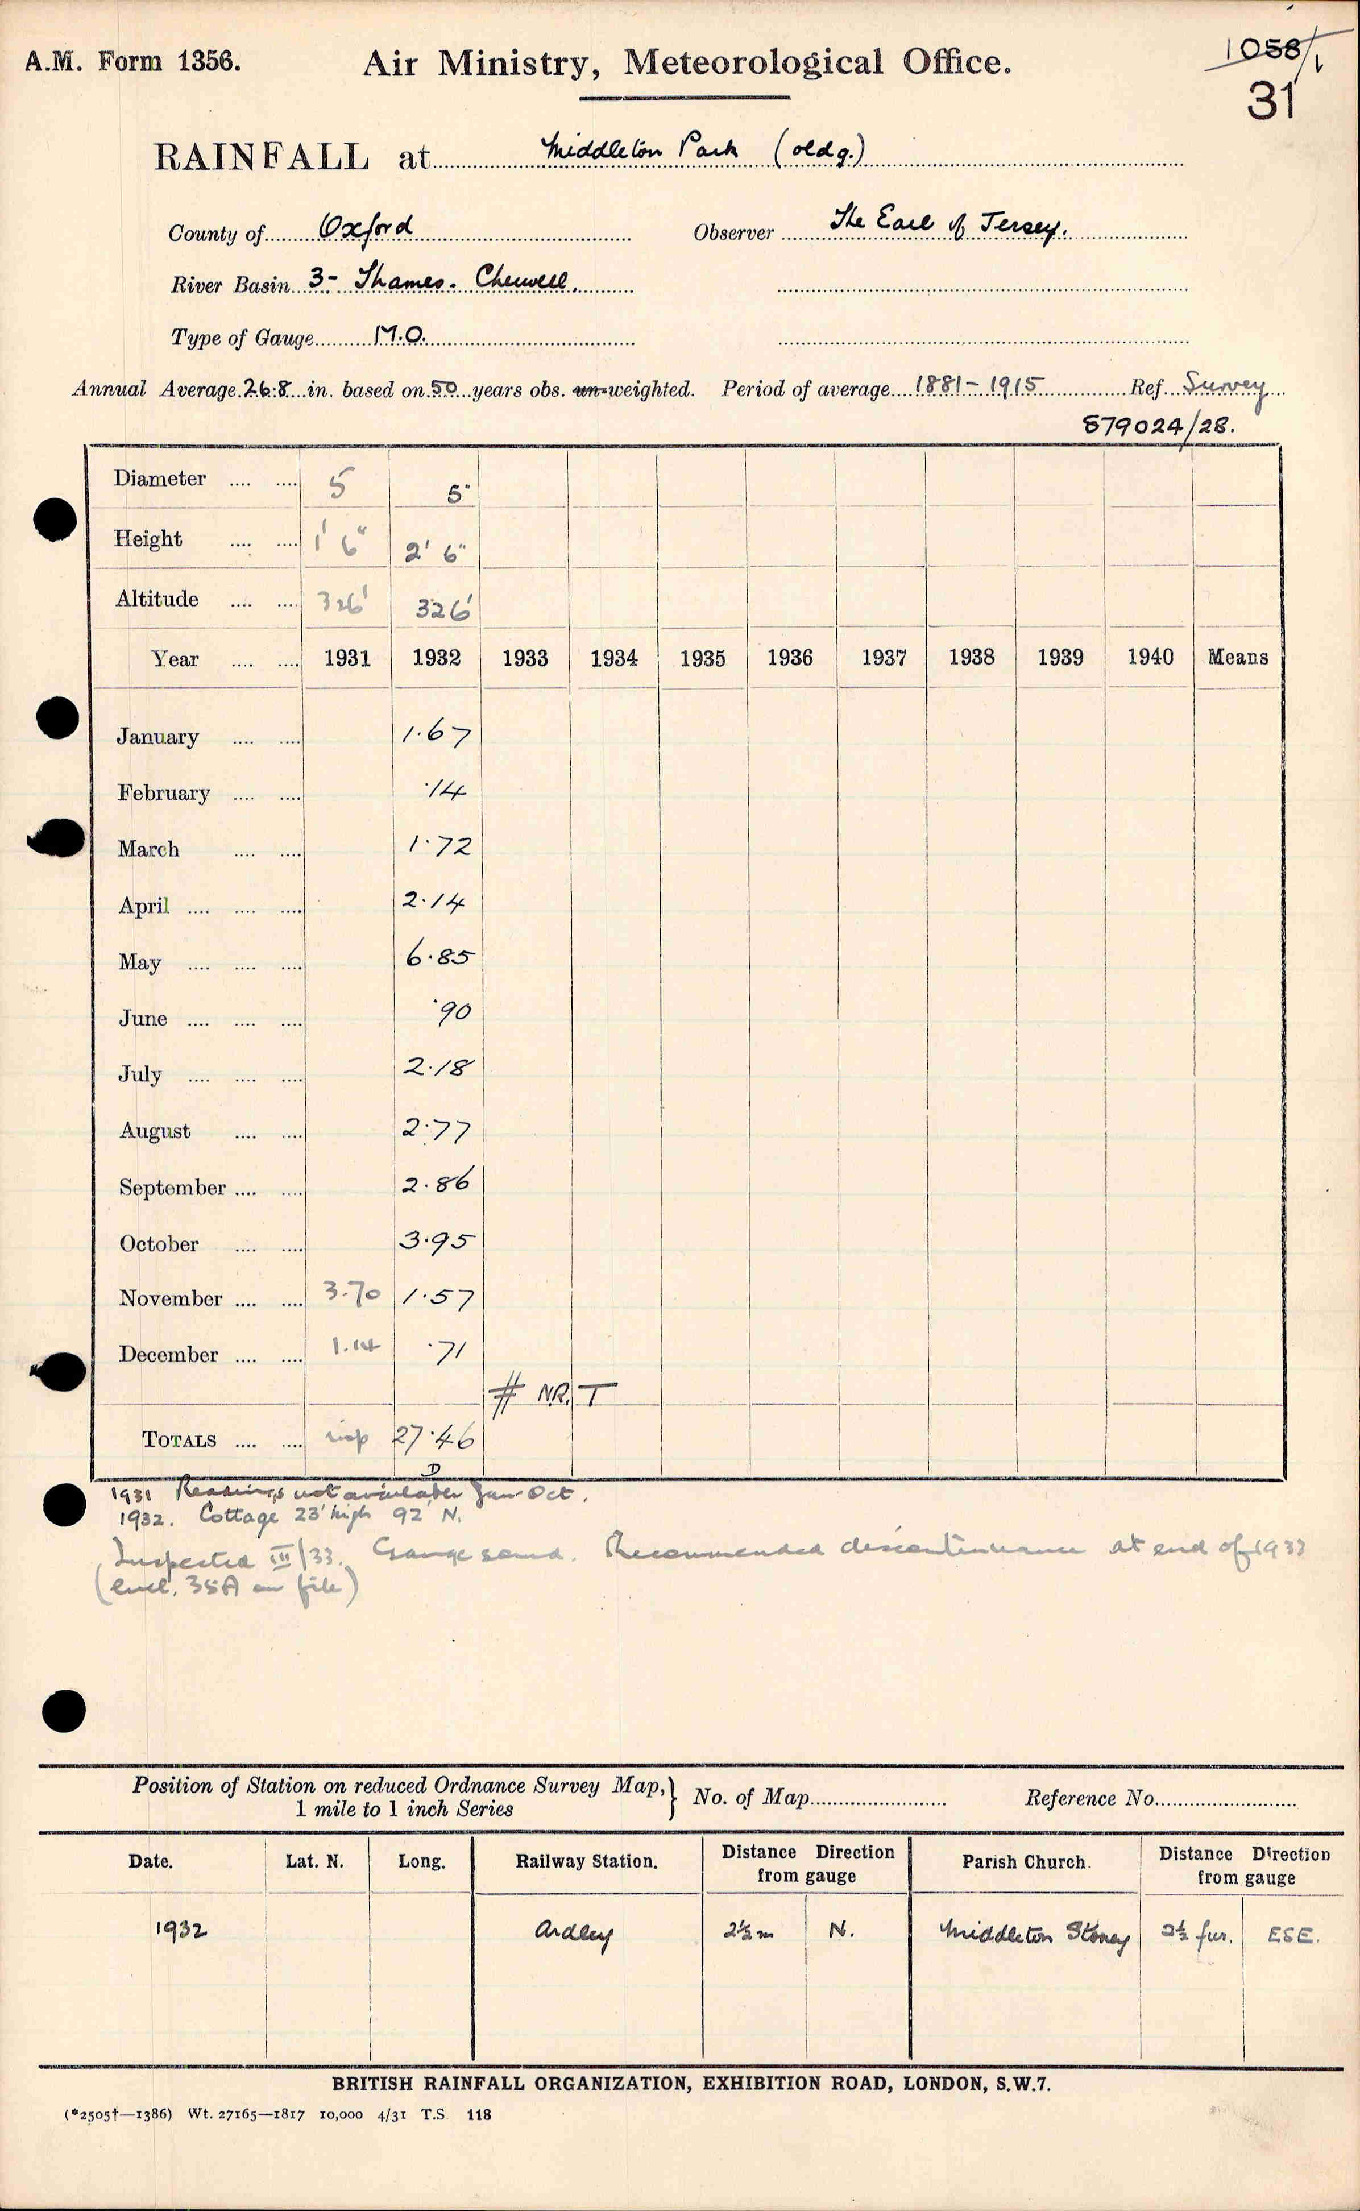 A.M. Form 1356.
Air Ministry, Meteorological Office.
1058/1
31
RAINFALL at Middleton Park (old g.)
County of Oxford
Observer The Earl of Jersey.
River Basin 3- Thames. Cherwell.
Type of Gauge M.O.
Annual Average 26.8 in. based on 50 years obs. un-weighted. Period of average 1881-1915 Ref. Survey
879024/28.
Diameter .... .... 5 5"
Height .... .... 1' 6" 2' 6"
Altitude .... .... 326' 326'
Year .... .... 1931 1932 1933 1934 1935 1936 1937 1938 1939 1940 Means
January .... .... 1.67
February .... .... .14
March .... .... 1.72
April .... .... .... 2.14
May .... .... .... 6.85
June .... .... .... .90
July .... .... .... 2.18
August .... .... 2.77
September .... .... 2.86
October .... .... 3.95
November .... .... 3.70 1.57
December .... .... 1.14 .71
# NR. T
TOTALS .... .... 27.46
D
1931 Readings not available Jan-Oct.
1932. Cottage 23' high 92' N.
Inspected III/33. Gauge sound. Recommended discontinuance at end of 1933
(encl. 35A on file)
Position of Station on reduced Ordnance Survey Map,}
1 mile to 1 inch Series
No. of Map
Reference No.
Date. Lat. N. Long. Railway Station. Distance Direction from gauge Parish Church. Distance Direction from gauge
1932 Ardley 2½ m N. Middleton Stoney 2½ fur. ESE.
BRITISH RAINFALL ORGANIZATION, EXHIBITION ROAD, LONDON, S.W.7.
(*2505†—1386) Wt. 27165—1817 10,000 4/31 T.S. 118